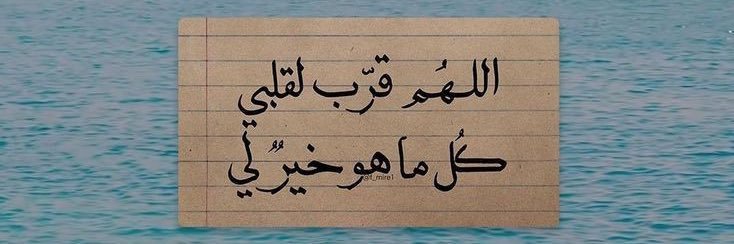 اللهُم قرّب لقلبي
كُل ما هو خيرٌ لي